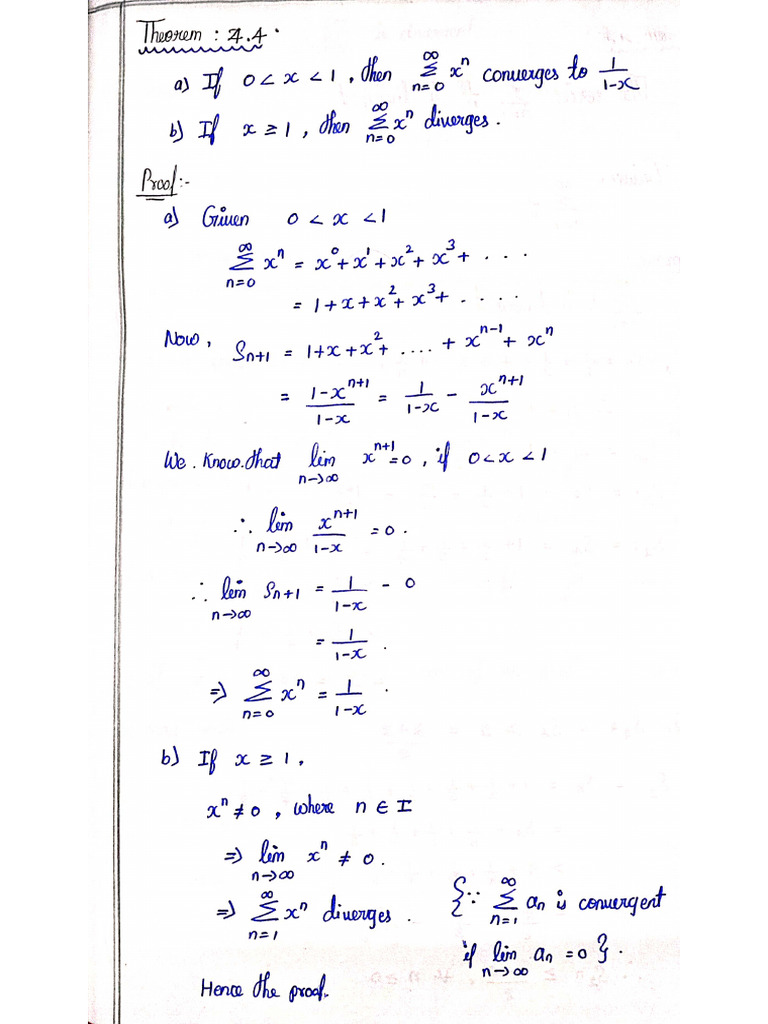 Theorem : 4.4.
a) If 0 < x < 1, then ∑_{n=0}^{∞} xⁿ converges to 1/(1-x)
b) If x ≥ 1, then ∑_{n=0}^{∞} xⁿ diverges.
Proof:-
a) Given 0 < x < 1
∑_{n=0}^{∞} xⁿ = x⁰ + x¹ + x² + x³ + . . . .
= 1 + x + x² + x³ + . . . .
Now, S_{n+1} = 1 + x + x² + .... + x^{n-1} + xⁿ
= (1-x^{n+1})/(1-x) = 1/(1-x) - x^{n+1}/(1-x)
We. Know.that lim_{n→∞} x^{n+1} = 0, if 0 < x < 1
∴ lim_{n→∞} x^{n+1}/(1-x) = 0.
∴ lim_{n→∞} S_{n+1} = 1/(1-x) - 0
= 1/(1-x).
⇒ ∑_{n=0}^{∞} xⁿ = 1/(1-x).
b) If x ≥ 1,
xⁿ ≠ 0, where n ∈ I
⇒ lim_{n→∞} xⁿ ≠ 0.
⇒ ∑_{n=1}^{∞} xⁿ diverges. {∵ ∑_{n=1}^{∞} aₙ is convergent
if lim_{n→∞} aₙ = 0}.
Hence the proof.